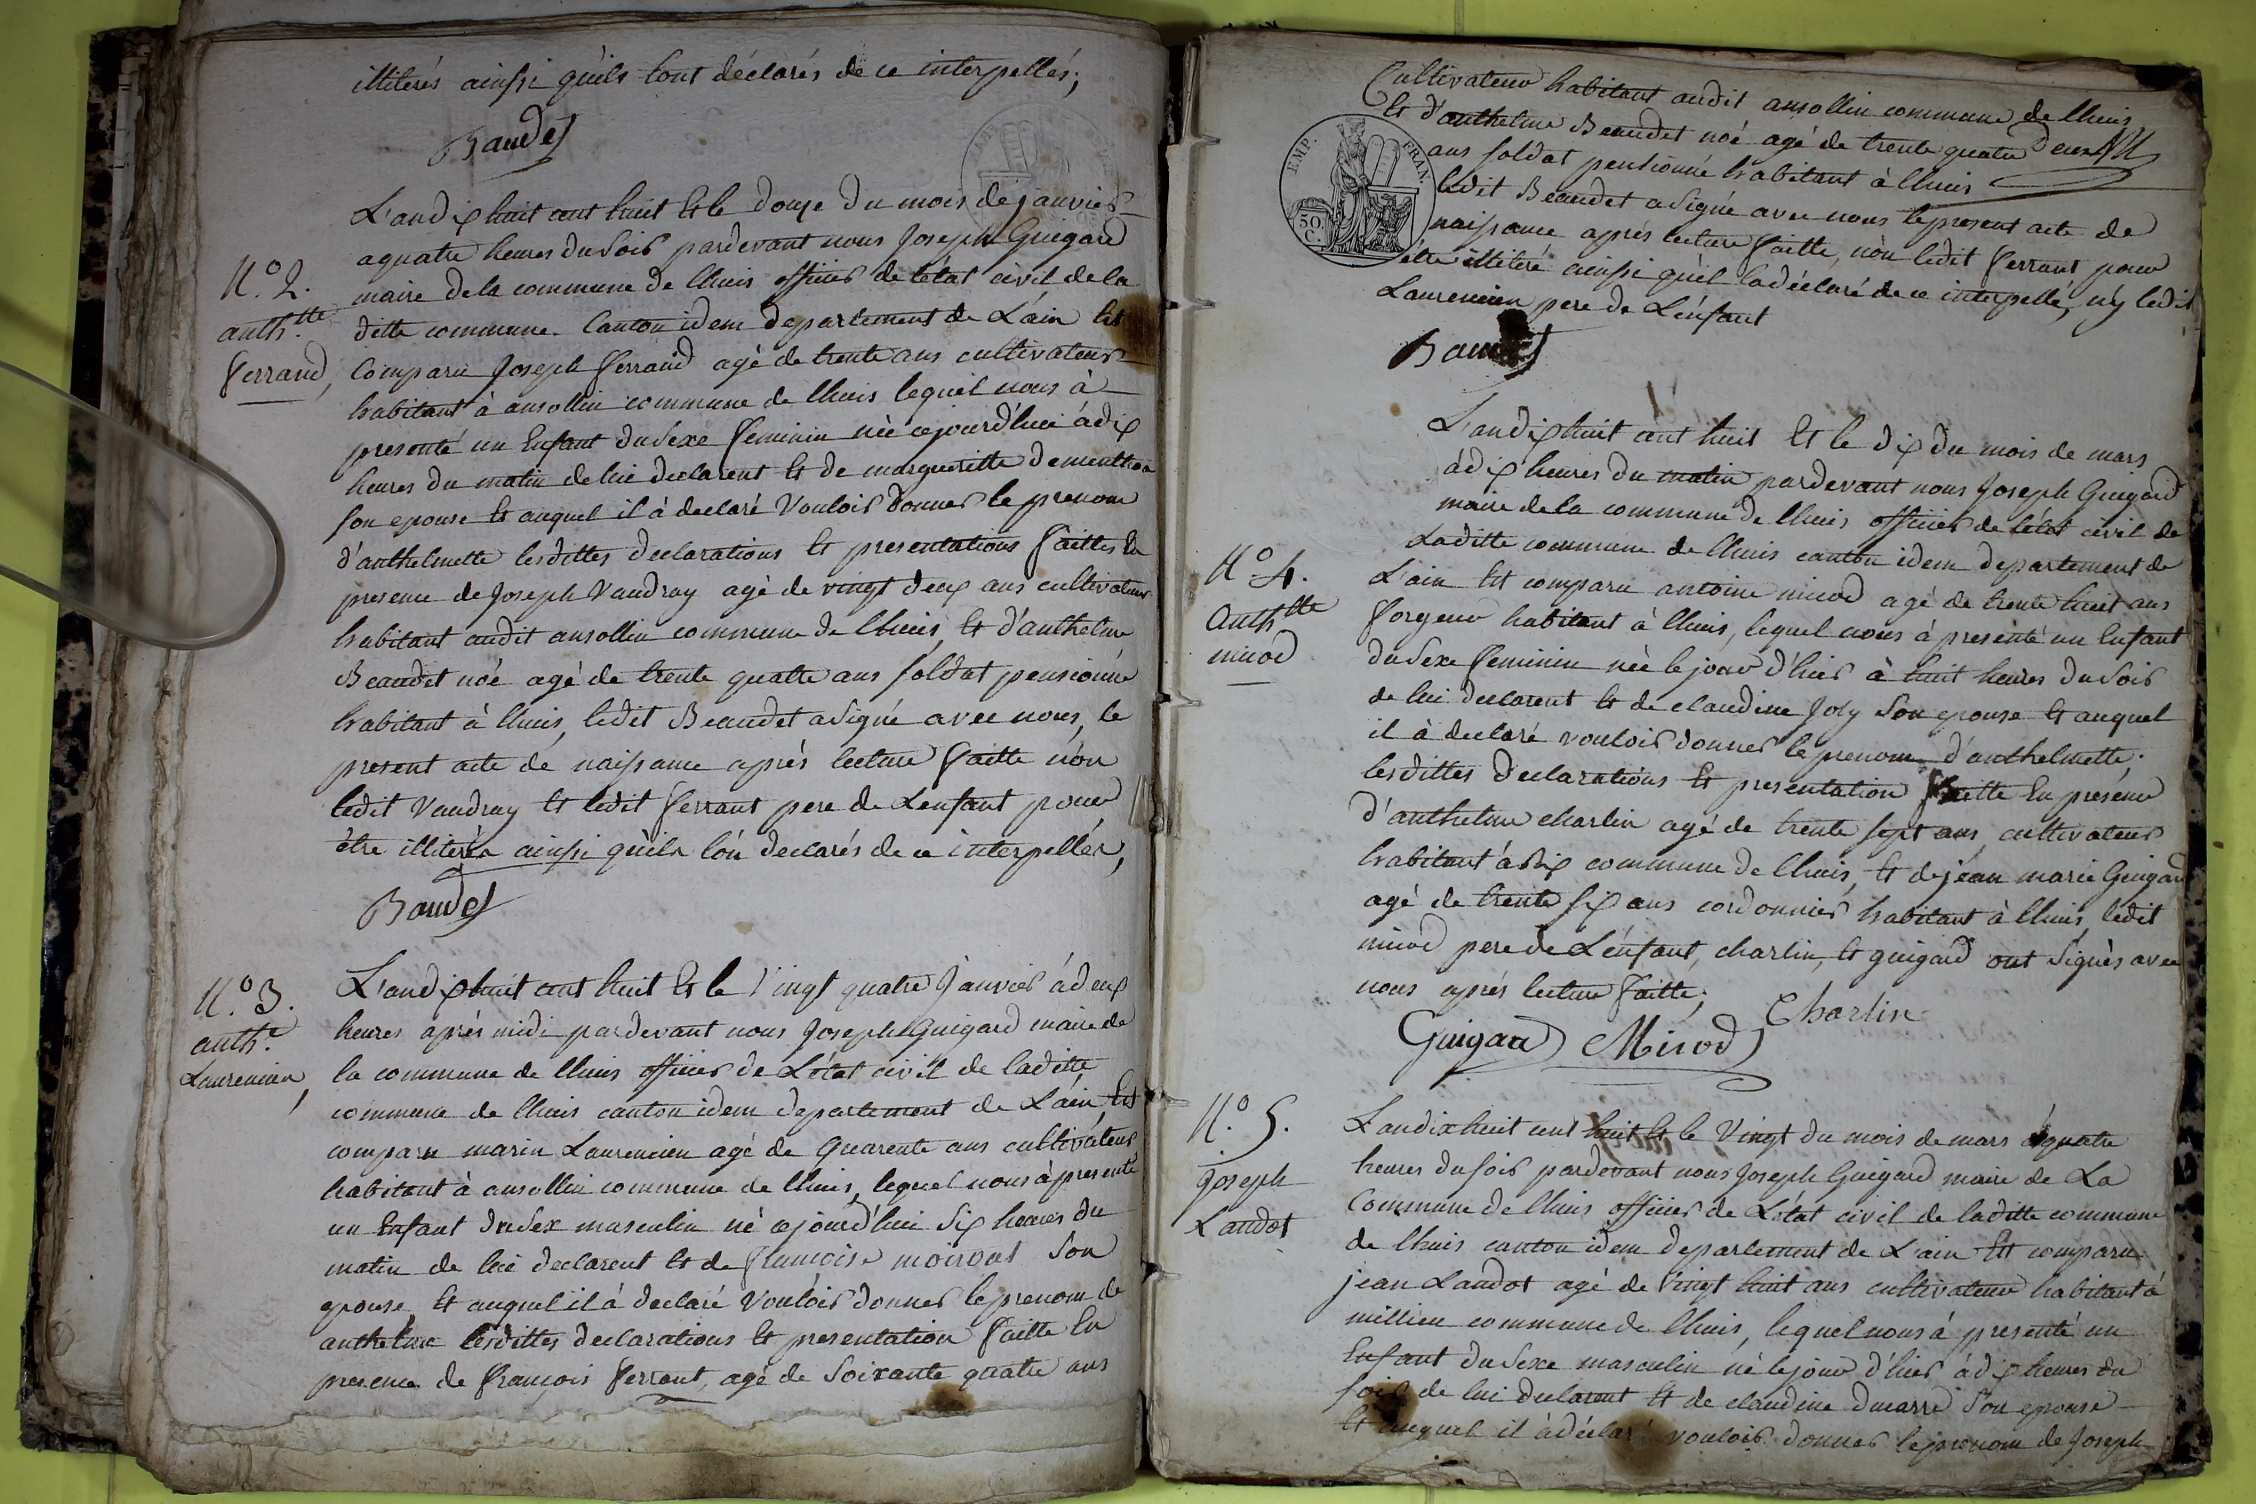 illiterés ainsi qu'ils l'ont déclarés de ce interpellés;
Baudet
L'an dix huit cent huit Et le douze du mois de janvier
a quatre heures du soir pardevant nous Joseph Guigard
maire de la commune de lhuis officier de l'état civil de la
ditte commune Canton idem departement de L'ain Est
Comparu Joseph ferrand agé de trente ans cultivateur
habitant à ansollin commune de lhuis lequel nous à
presenté un Enfant du Sexe feminin née ce jourd'hui à dix
heures du matin de lui declarent Et de margueritte dementhon
son epouse Et auquel il à declaré Vouloir donner le prenom
d'anthelmette lesdittes declarations Et presentations faittes En
presence de Joseph Vaudray agé de vingt deux ans cultivateur
habitant audit ansollin commune de lhuis, Et d'anthelme
Beaudet noé agé de trente quatre ans soldat pensionné
habitant à lhuis, ledit Beaudet a Signé avec nous, le
present acte de naissance aprés lecture faitte nón
ledit Vaudray Et ledit ferrant pere de L'enfant pour
étre illiterés ainsi qu'ils l'on declarés de ce interpellés,
Baudet
N.º 2.
anth.tte
ferrand,
N.º 3.
anth.e
Laurencien,
L'an dix huit cent huit Et le Vingt quatre Janvier à deux
heures aprés midi pardevant nous Joseph Guigard maire de
la commune de lhuis officier de L'état civil de laditte
commune de lhuis canton idem departement de L'ain, Est
comparu marin Laurencien agé de Quarente ans cultivateur
habitant à ansollin commune de lhuis, lequel nous à presenté
un Enfant du Sex masculin né ce jourd'hui Six heures du
matin de lui declarent Et de françoise moiroud Son
epouse Et auquel il à declaré Vouloir donner le prenom de
anthelme lesdittes declarations Et presentation faitte En
presence de françois ferrant, agé de Soixante quatre ans
Cultivateur habitant audit ansollin commune de lhuis,
Et d'anthelme Beaudet noé agé de trente quatre
ans soldat pensionné habitant à lhuis
ledit Beaudet a Signé avec nous le present acte de
naissance aprés lecture faitte, nòn ledit ferrant pour
étre illiteré ainsi qu'il la déclaré de ce interpellé, n'y ledit
Laurencien pere de L'énfant
EMP. FRAN.
50. C.
Baudet
L'an dix huit cent huit Et le dix du mois de mars
à dix heures du matin pardevant nous Joseph Guigard
maire de la commune de lhuis officier de l'état civil de
Laditte commune de lhuis canton idem departement de
L'ain Est comparu antoine micod agé de trente huit ans
forgeur habitant à lhuis, lequel nous à presenté un Enfant
du Sexe feminin née le jour d'hier à huit heures du Soir
de lui declarent Et de claudine Joly Son epouse Et auquel
il à declaré vouloir donner le prenom d'anthelmette;
lesdittes declarations Et presentation faitte En présence
d'anthelme charlin agé de trente sept ans, cultivateur
habitant à Rix commune de lhuis, Et de jean marie Guigard
agé de trente six ans cordonnier habitant à lhuis, ledit
micod pere de L'énfant, charlin, Et guigard ont Signés avec
nous aprés lecture faitte;
Guigard Micod Charlin
N.º 4.
Anth.tte
micod
N.º 5.
Joseph
Landot
L'an dix huit cent huit Et le Vingt du mois de mars à quatre
heures du soir pardevant nous Joseph Guigard maire de La
Commune de lhuis officier de L'état civil de laditte commune
de lhuis canton idem departement de L'ain Est comparu
jean Landot agé de vingt huit ans cultivateur habitant à
millieu commune de lhuis, lequel nous à presenté un
Enfant du Sexe masculin né le jour d'hier à dix heures du
soir de lui declarent Et de claudine ducarre Son epouse
Et auquel il à déclaré vouloir donner le prenom de Joseph